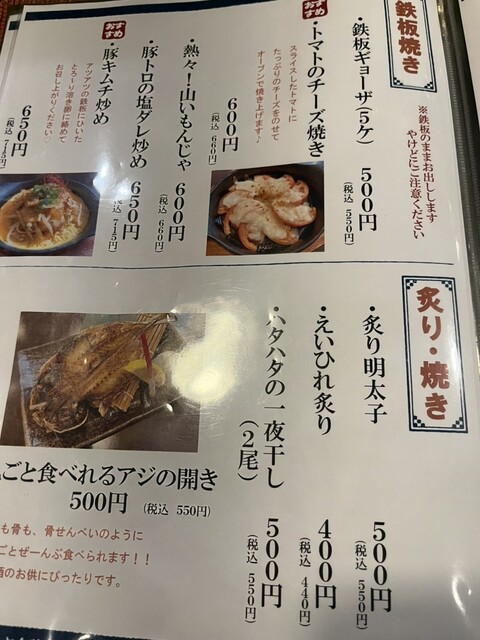 鉄板焼き
※鉄板のままお出しします
やけどにご注意ください
・鉄板ギョーザ(5ケ)
500円
(税込 550円)
おすすめ
・トマトのチーズ焼き
スライスしたトマトに
たっぷりのチーズをのせて
オーブンで焼き上げます♪
600円
(税込 660円)
・熱々!山いもんじゃ
600円
(税込 660円)
・豚トロの塩ダレ炒め
650円
(税込 715円)
おすすめ
・豚キムチ炒め
アツアツの鉄板にひいた
とろ〜り溶き卵に絡めて
お召し上がりください♡
650円
(税込 715円)
炙り・焼き
・炙り明太子
500円
(税込 550円)
・えいひれ炙り
400円
(税込 440円)
・ハタハタの一夜干し
(2尾)
500円
(税込 550円)
ごと食べれるアジの開き
500円 (税込 550円)
も骨も、骨せんべいのように
ごとぜーんぶ食べられます!!
酒のお供にぴったりです。